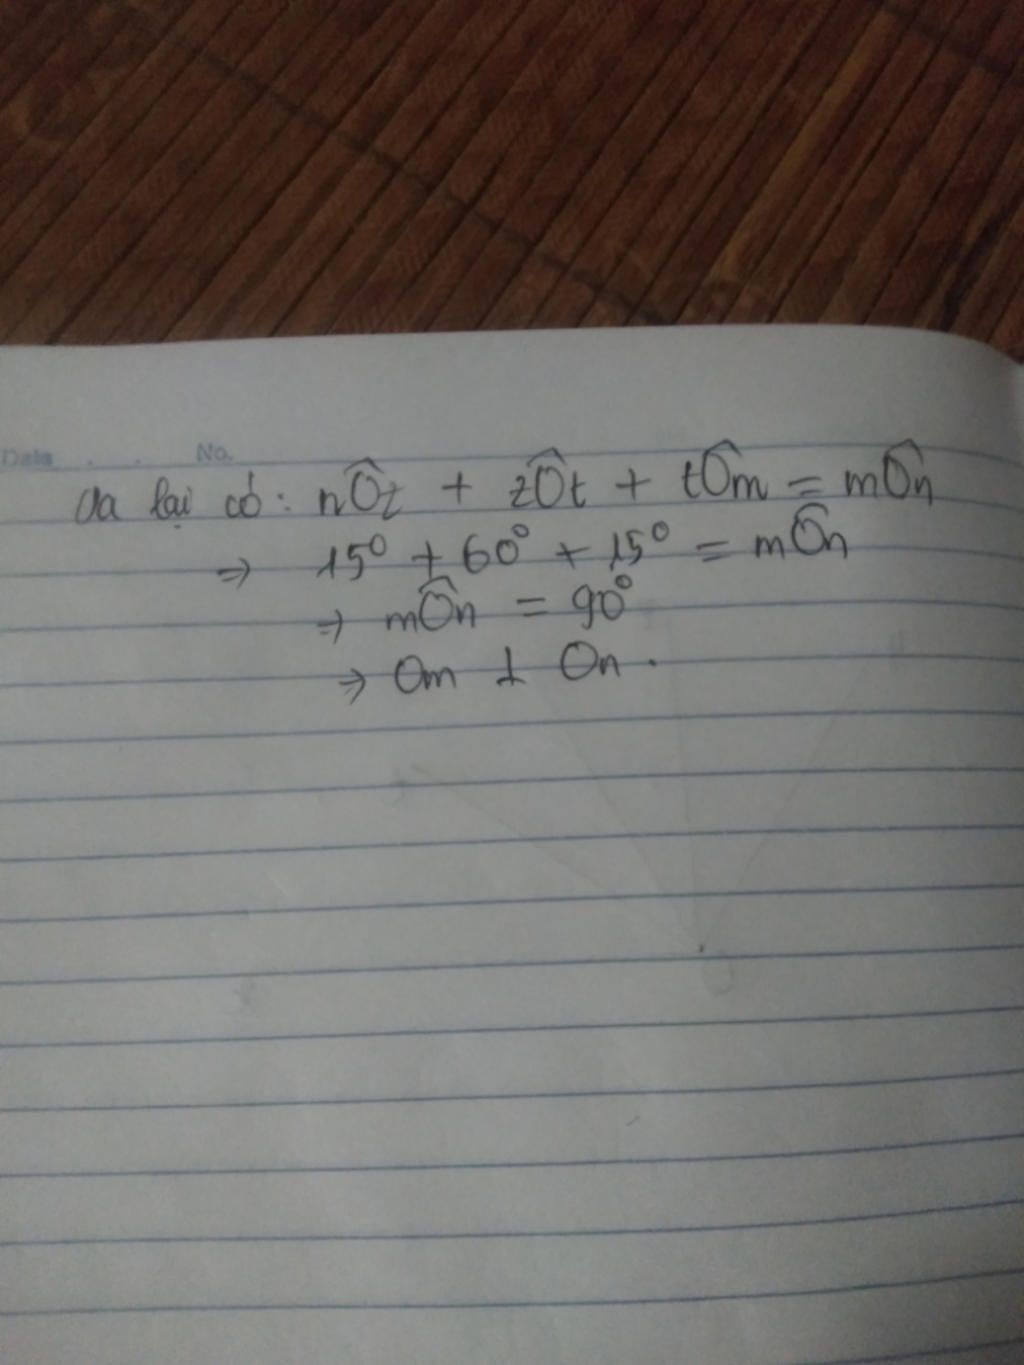 Date . . No.
Ta lại có: nÔz + zÔt + tÔm = mÔn
⇒ 15° + 60° + 15° = mÔn
⇒ mÔn = 90°
⇒ Om ⊥ On.